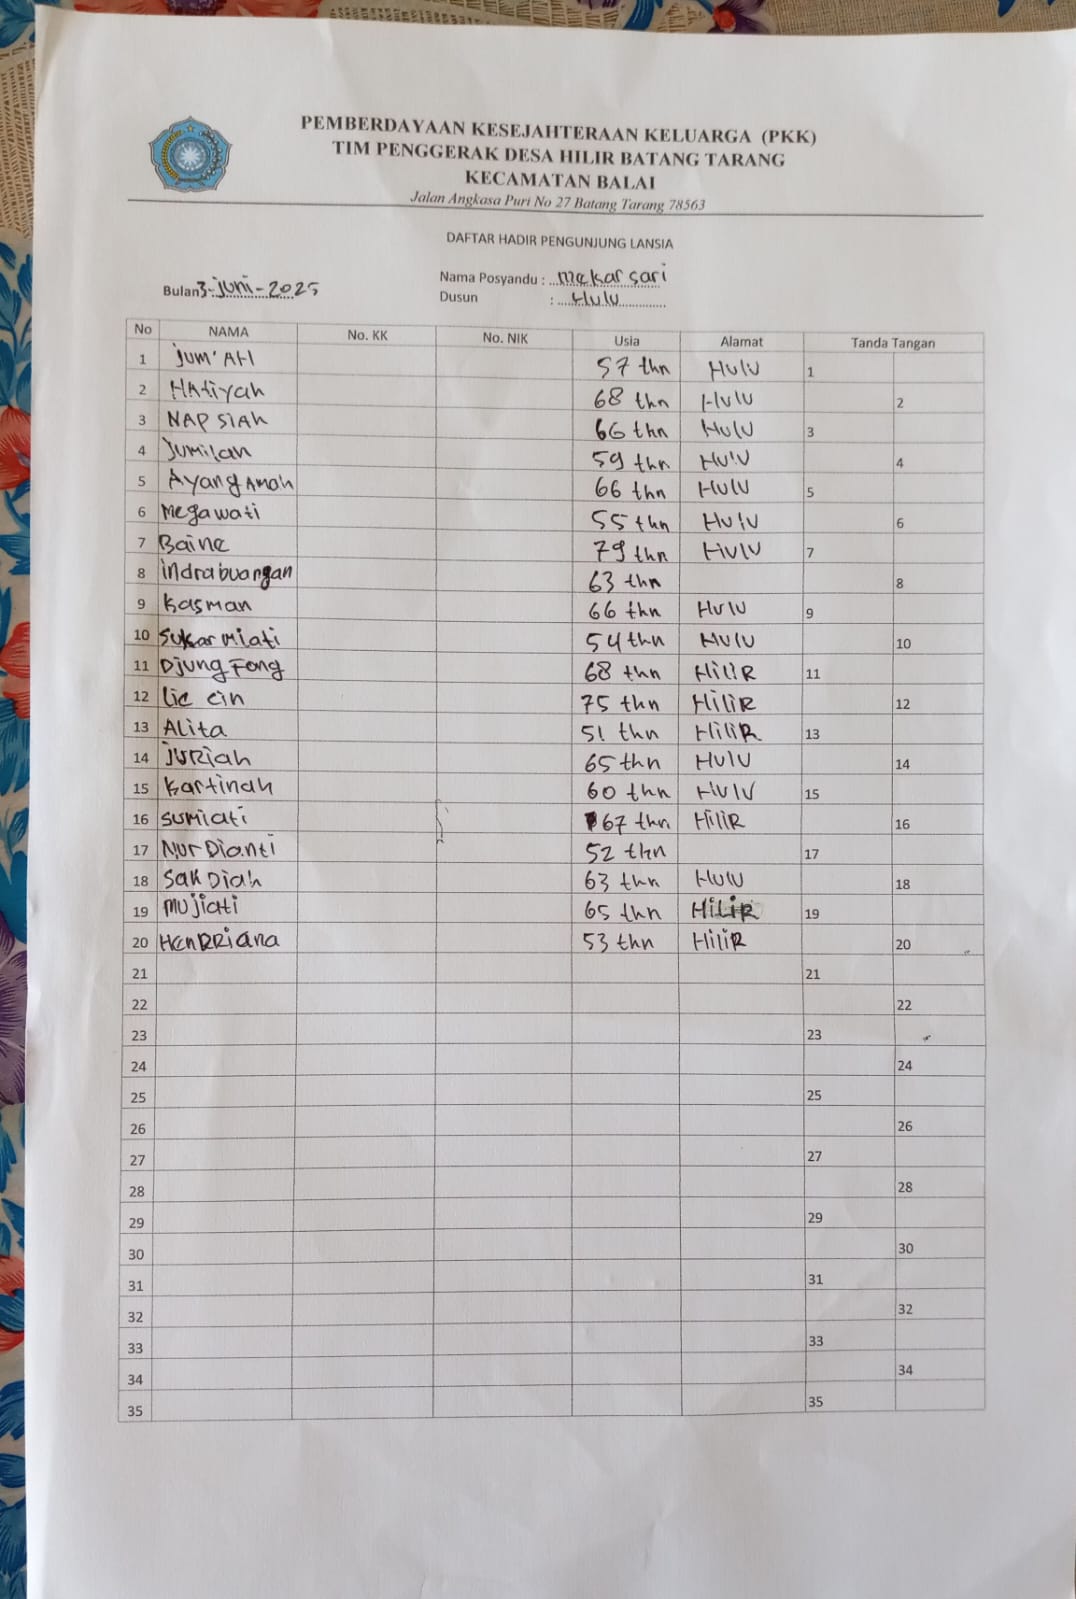 PEMBERDAYAAN KESEJAHTERAAN KELUARGA (PKK)
TIM PENGGERAK DESA HILIR BATANG TARANG
KECAMATAN BALAI
Jalan Angkasa Puri No 27 Batang Tarang 78563
DAFTAR HADIR PENGUNJUNG LANSIA
Bulan 3-juni-2025
Nama Posyandu : mekar sari
Dusun : Hulu
No NAMA No. KK No. NIK Usia Alamat Tanda Tangan
1 jum'Ati 57 thn Hulu 1
2 HAtiyah 68 thn Hulu 2
3 NAPSIAH 66 thn Hulu 3
4 Jumilah 59 thn Hulu 4
5 Ayang Amoh 66 thn Hulu 5
6 Megawati 55 thn Hulu 6
7 Baine 79 thn Hulu 7
8 indrabuangan 63 thn 8
9 Kasman 66 thn Hulu 9
10 Sukarmiati 54 thn Hulu 10
11 Djung Fong 68 thn HiliR 11
12 Lie cin 75 thn HiliR 12
13 Alita 51 thn HiliR 13
14 juRiah 65 thn Hulu 14
15 Kartinah 60 thn Hulu 15
16 sumiati 67 thn HiliR 16
17 Nur Dianti 52 thn 17
18 Sak Diah 63 thn Hulu 18
19 Mujiati 65 thn HiLiR 19
20 HenRRiana 53 thn HiliR 20
21 21
22 22
23 23
24 24
25 25
26 26
27 27
28 28
29 29
30 30
31 31
32 32
33 33
34 34
35 35